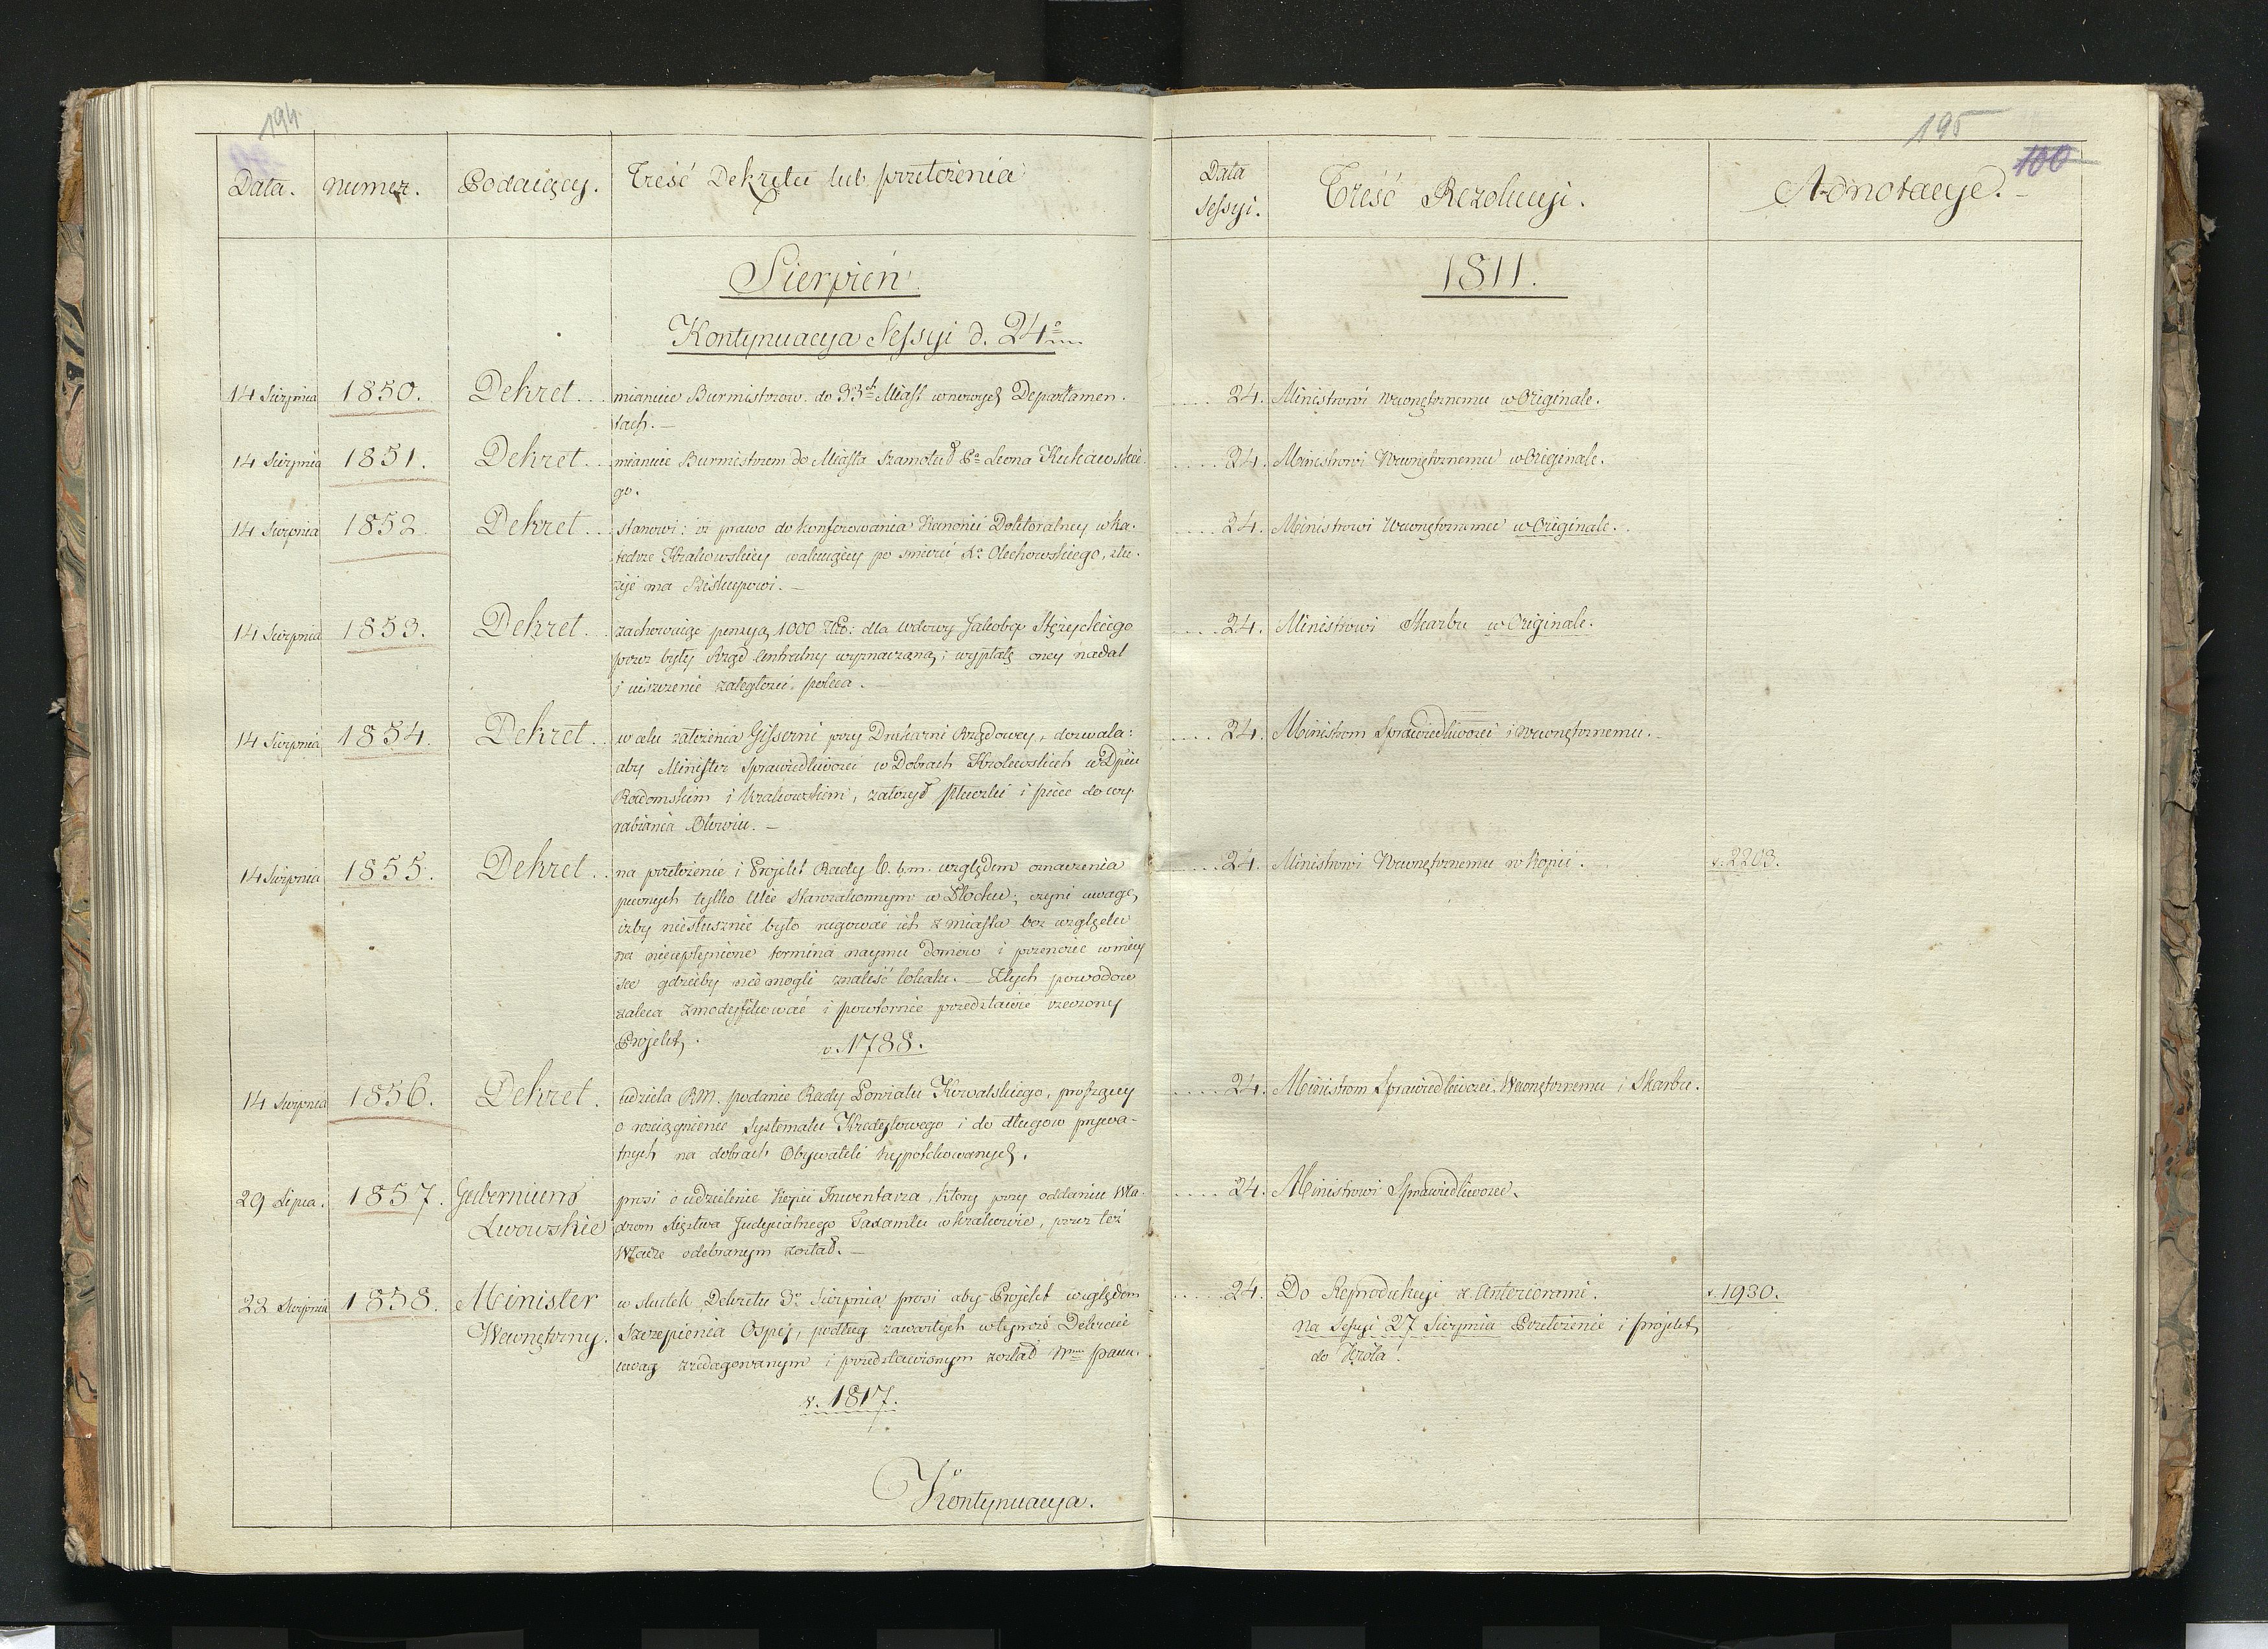 194
195
100
Data. numer. Podaiący. Treść Dekretu lub przełożenia
Data Sessyi. Treść Rezolucyi. Adnotacye.
Sierpień 1811.
Kontynuacya Sessyi d. 24º
14 Sierpnia 1850. Dekret mianuie Burmistrzów do 33ch Miast w nowych Departamen.
tach. —
24. Ministrowi Wewnętrznemu w Originale.
14 Sierpnia 1851. Dekret mianuie Burmistrzem do Miasta Szamotuł Pª Leona Kukawskie
go.
24. Ministrowi Wewnętrznemu w Originale.
14 Sierpnia 1852. Dekret stanowi: iż prawo do konferowania Kanonii Doktoralney w ka.
tedrze Krakowskiey wakuiącey po śmierci Xº Olechowskiego, słu.
żyć ma Biskupowi. —
24. Ministrowi Wewnętrznemu w Originale.
14 Sierpnia 1853. Dekret zachowuiąc pensyą 1000 Złł: dla wdowy Jakoba Stężyckiego
przez były Rząd Centralny wyznaczoną; wypłatę oney nadal
i uiszczenie zaległości poleca. —
24. Ministrowi Skarbu w Originale.
14 Sierpnia 1854. Dekret w celu założenia Gisserni przy Drukarni Rządowey, dozwala:
aby Minister Sprawiedliwości w Dobrach Krolewskich w Dpcie
Radomskim i Krakowskim, założył płuczki i piece do wy.
rabiania Ołowiu. —
24. Ministrom Sprawiedliwości i Wewnętrznemu.
14 Sierpnia 1855. Dekret na przełożenie i Projekt Rady b. m. względem oznaczenia
pewnych tylko Ulic Starozakonnym w Płocku, czyni uwagę,
iżby niesłusznie było rugować ich z miasta bez względu
na nieupłynione termina naymu domów i przenosić w miey
sce gdzieby nie mogli znaleść lokalu. — Z tych powodów
zaleca zmodyfikować i powtórnie przedstawić rzeczony
Projekt. v. 1788.
24. Ministrowi Wewnętrznemu w kopii. v. 2203.
14 Sierpnia 1856. Dekret udziela RM. podanie Rady Powiatu Kowalskiego, proszącey
o rozciągnienie Systematu Kredytowego i do długow prywa-
tnych na dobrach Obywateli hypotekowanych.
24. Ministrom Sprawiedliwości, Wewnętrznemu i Skarbu.
29 Lipca. 1857. Gubernium
Lwowskie
prosi o udzielenie kopii Inwentarza, ktory przy oddaniu Wła.
dzom Xięstwa Judycialnego Taxamtu w Krakowie, przez też
Władze odebranym został. —
24. Ministrowi Sprawiedliwości.
22 Sierpnia 1858. Minister
Wewnętrzny.
w skutek Dekretu 3º Sierpnia prosi aby Projekt względem
szczepienia Ospy, podług zawartych w tymże Dekrecie
uwag zredagowanym i przedstawionym został Nmu Panu.
v. 1817.
24. Do Reprodukcyi z Anteriorami. v. 1930.
Na Sessyi 27 Sierpnia Przełożenie i projekt
do Króla.
Kontynuacya.